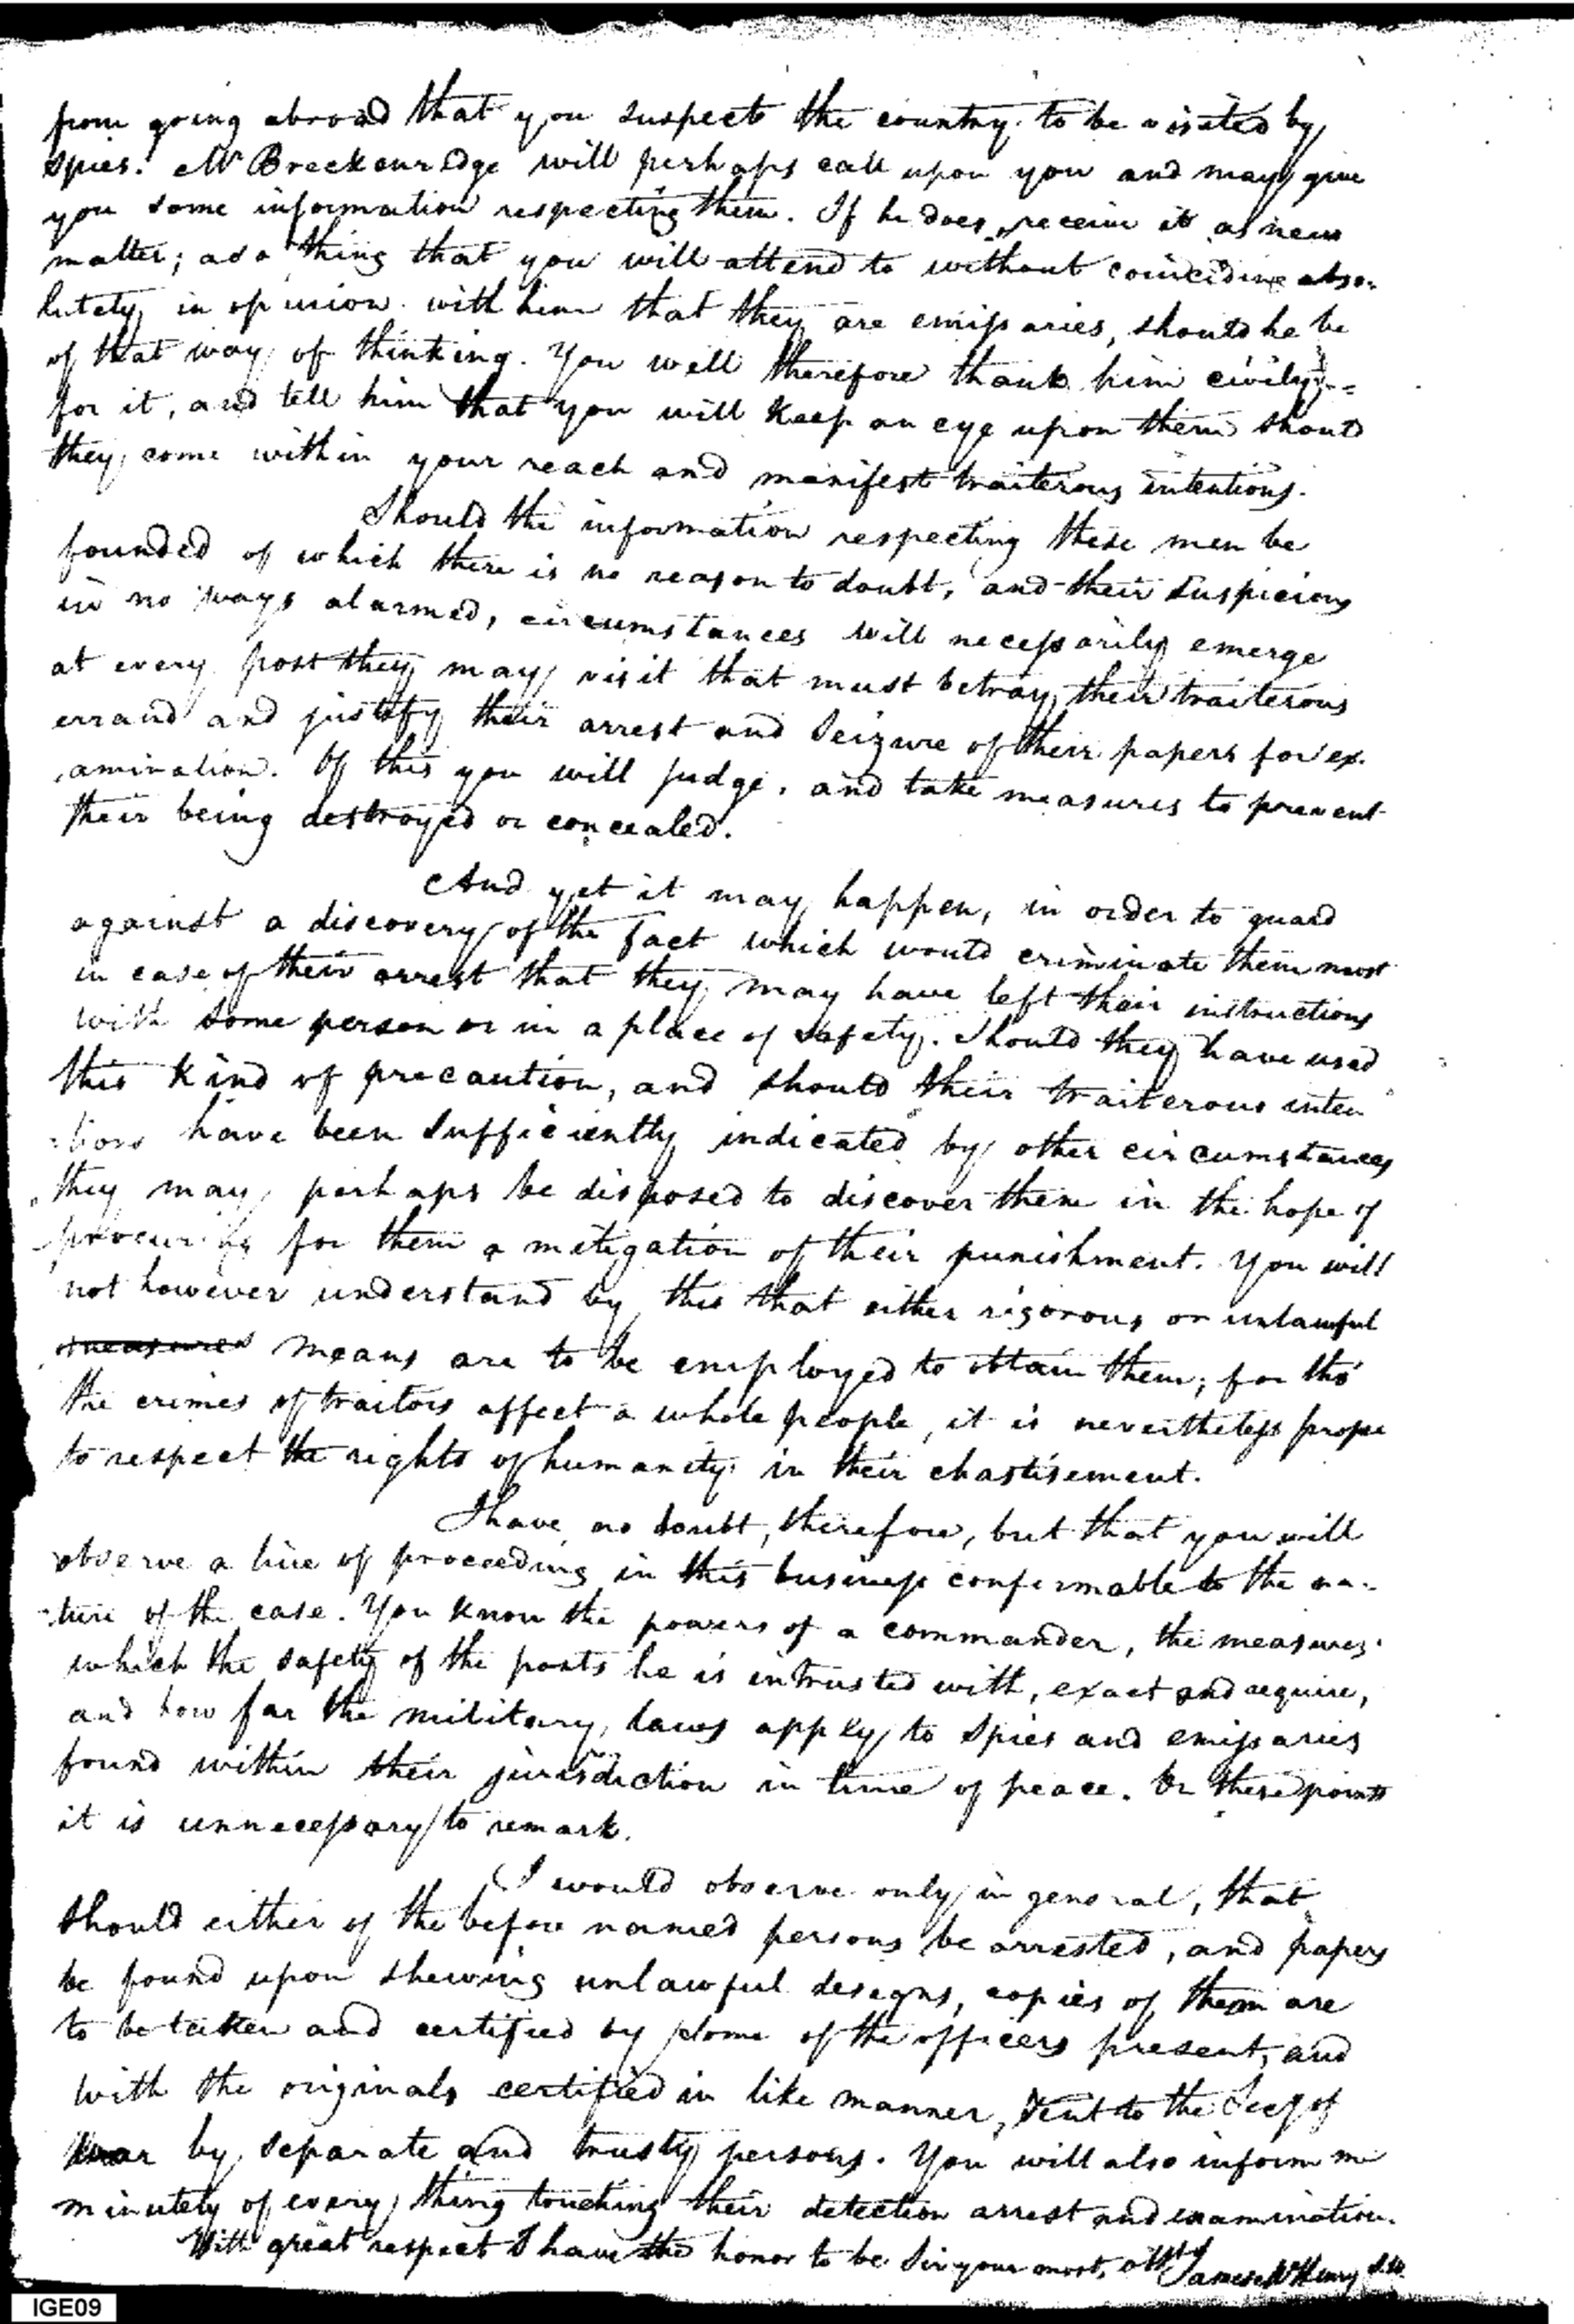 from going abroad that you suspect the country to be visited by
spies. Mr Breckenridge will perhaps call upon you and may give
you some information respecting them. If he does, receive it as new
matter; as a thing that you will attend to without coinciding abso-
lutely in opinion with him that they are emissaries, should he be
of that way of thinking. You will therefore thank him civily
for it, and tell him that you will keep an eye upon them should
they come within your reach and manifest traiterous intentions.
Should the information respecting these men be
founded of which there is no reason to doubt, and their suspicions
in no ways alarmed, circumstances will necessarily emerge
at every post they may visit that must betray their traiterous
errand and justify their arrest and seizure of their papers for ex-
amination. Of this you will judge, and take measures to prevent
their being destroyed or concealed.
And yet it may happen, in order to guard
against a discovery of the fact which would criminate them most
in case of their arrest that they may have left their instructions
with some person or in a place of safety. Should they have used
this kind of precaution, and should their traiterous inten
-tions have been sufficiently indicated by other circumstances
they may perhaps be disposed to discover them in the hope of
procuring for them a mitigation of their punishment. You will
not however understand by this that either rigorous or unlawful
measures means are to be employed to obtain them; for tho'
the crimes of traitors affect a whole people, it is nevertheless prope
to respect the rights of humanity in their chastisement.
I have no doubt, therefore, but that you will
observe a line of proceeding in this business conformable to the na-
-ture of the case. You know the powers of a commander, the measures
which the safety of the posts he is intrusted with, exact and require,
and how far the military laws apply to spies and emissaries
found within their jurisdiction in time of peace. On these points
it is unnecessary to remark.
I would observe only in general, that
should either of the before named persons be arrested, and papers
be found upon shewing unlawful designs, copies of them are
to be taken and certified by some of the officers present, and
with the originals certified in like manner, sent to the Secy of
War by separate and trusty persons. You will also inform me
minutely of every thing touching their detection arrest and examination.
With great respect I have the honor to be Sir your most, obt
James McHenry
IGE09